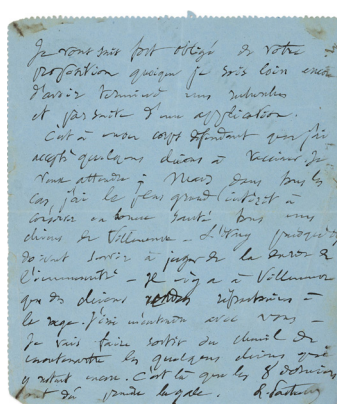 Je vous suis fort obligé de votre
proposition quoique je sois loin encore
d'avoir terminé mes recherches
et par suite d'une application.
C'est à mon corps défendant que j'ai
accepté quelques chiens à vacciner. Je
vous attendrai mais dans tous les
cas, j'ai le plus grand intérêt à
conserver en bonne santé tous mes
chiens de Villeneuve - L'étang puisqu'ils
doivent servir à juger de la durée de
l'immunité - Il n'y a à Villeneuve
que des chiens réfractaires à
la rage. J'irai avec vous -
Je vais faire sortir du chenil de
les quelques chiens qui
y restent encore. C'est là que les 8 derniers
ont dû prendre la gale. L. Pasteur